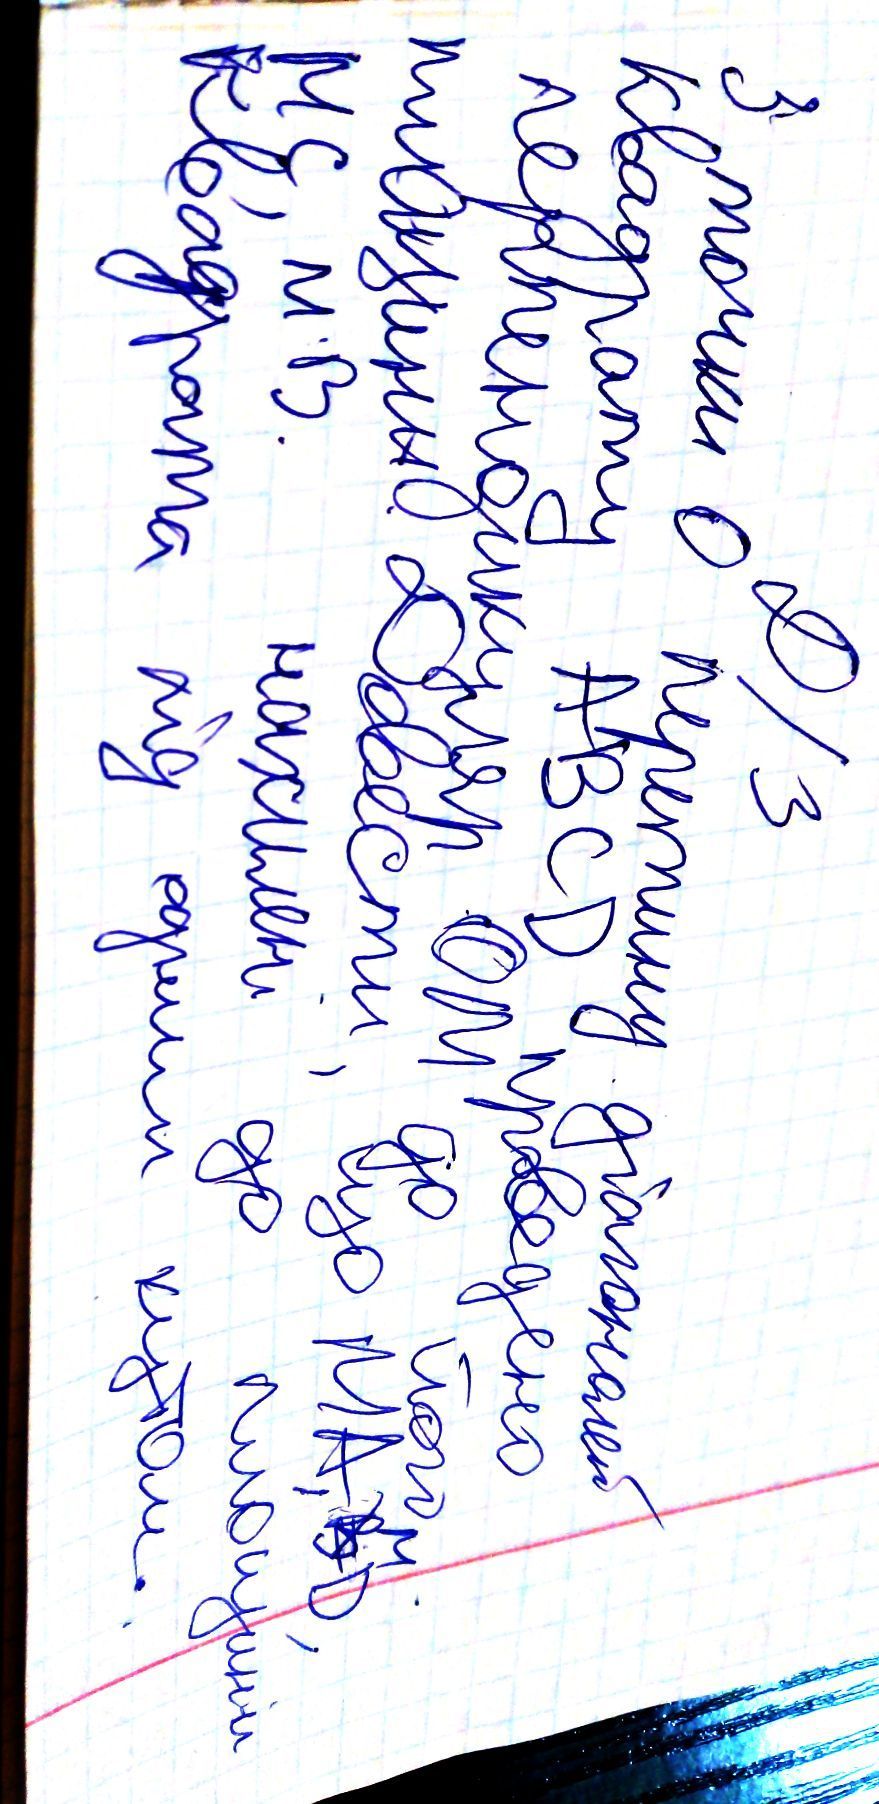 Д/З
З точки О перетину діагоналей
квадрату ABCD проведено
перпендикуляр ОМ до його
площини. Довести, що МА, МD,
МС, МВ. нахилені до площини
квадрата під одним кутом.